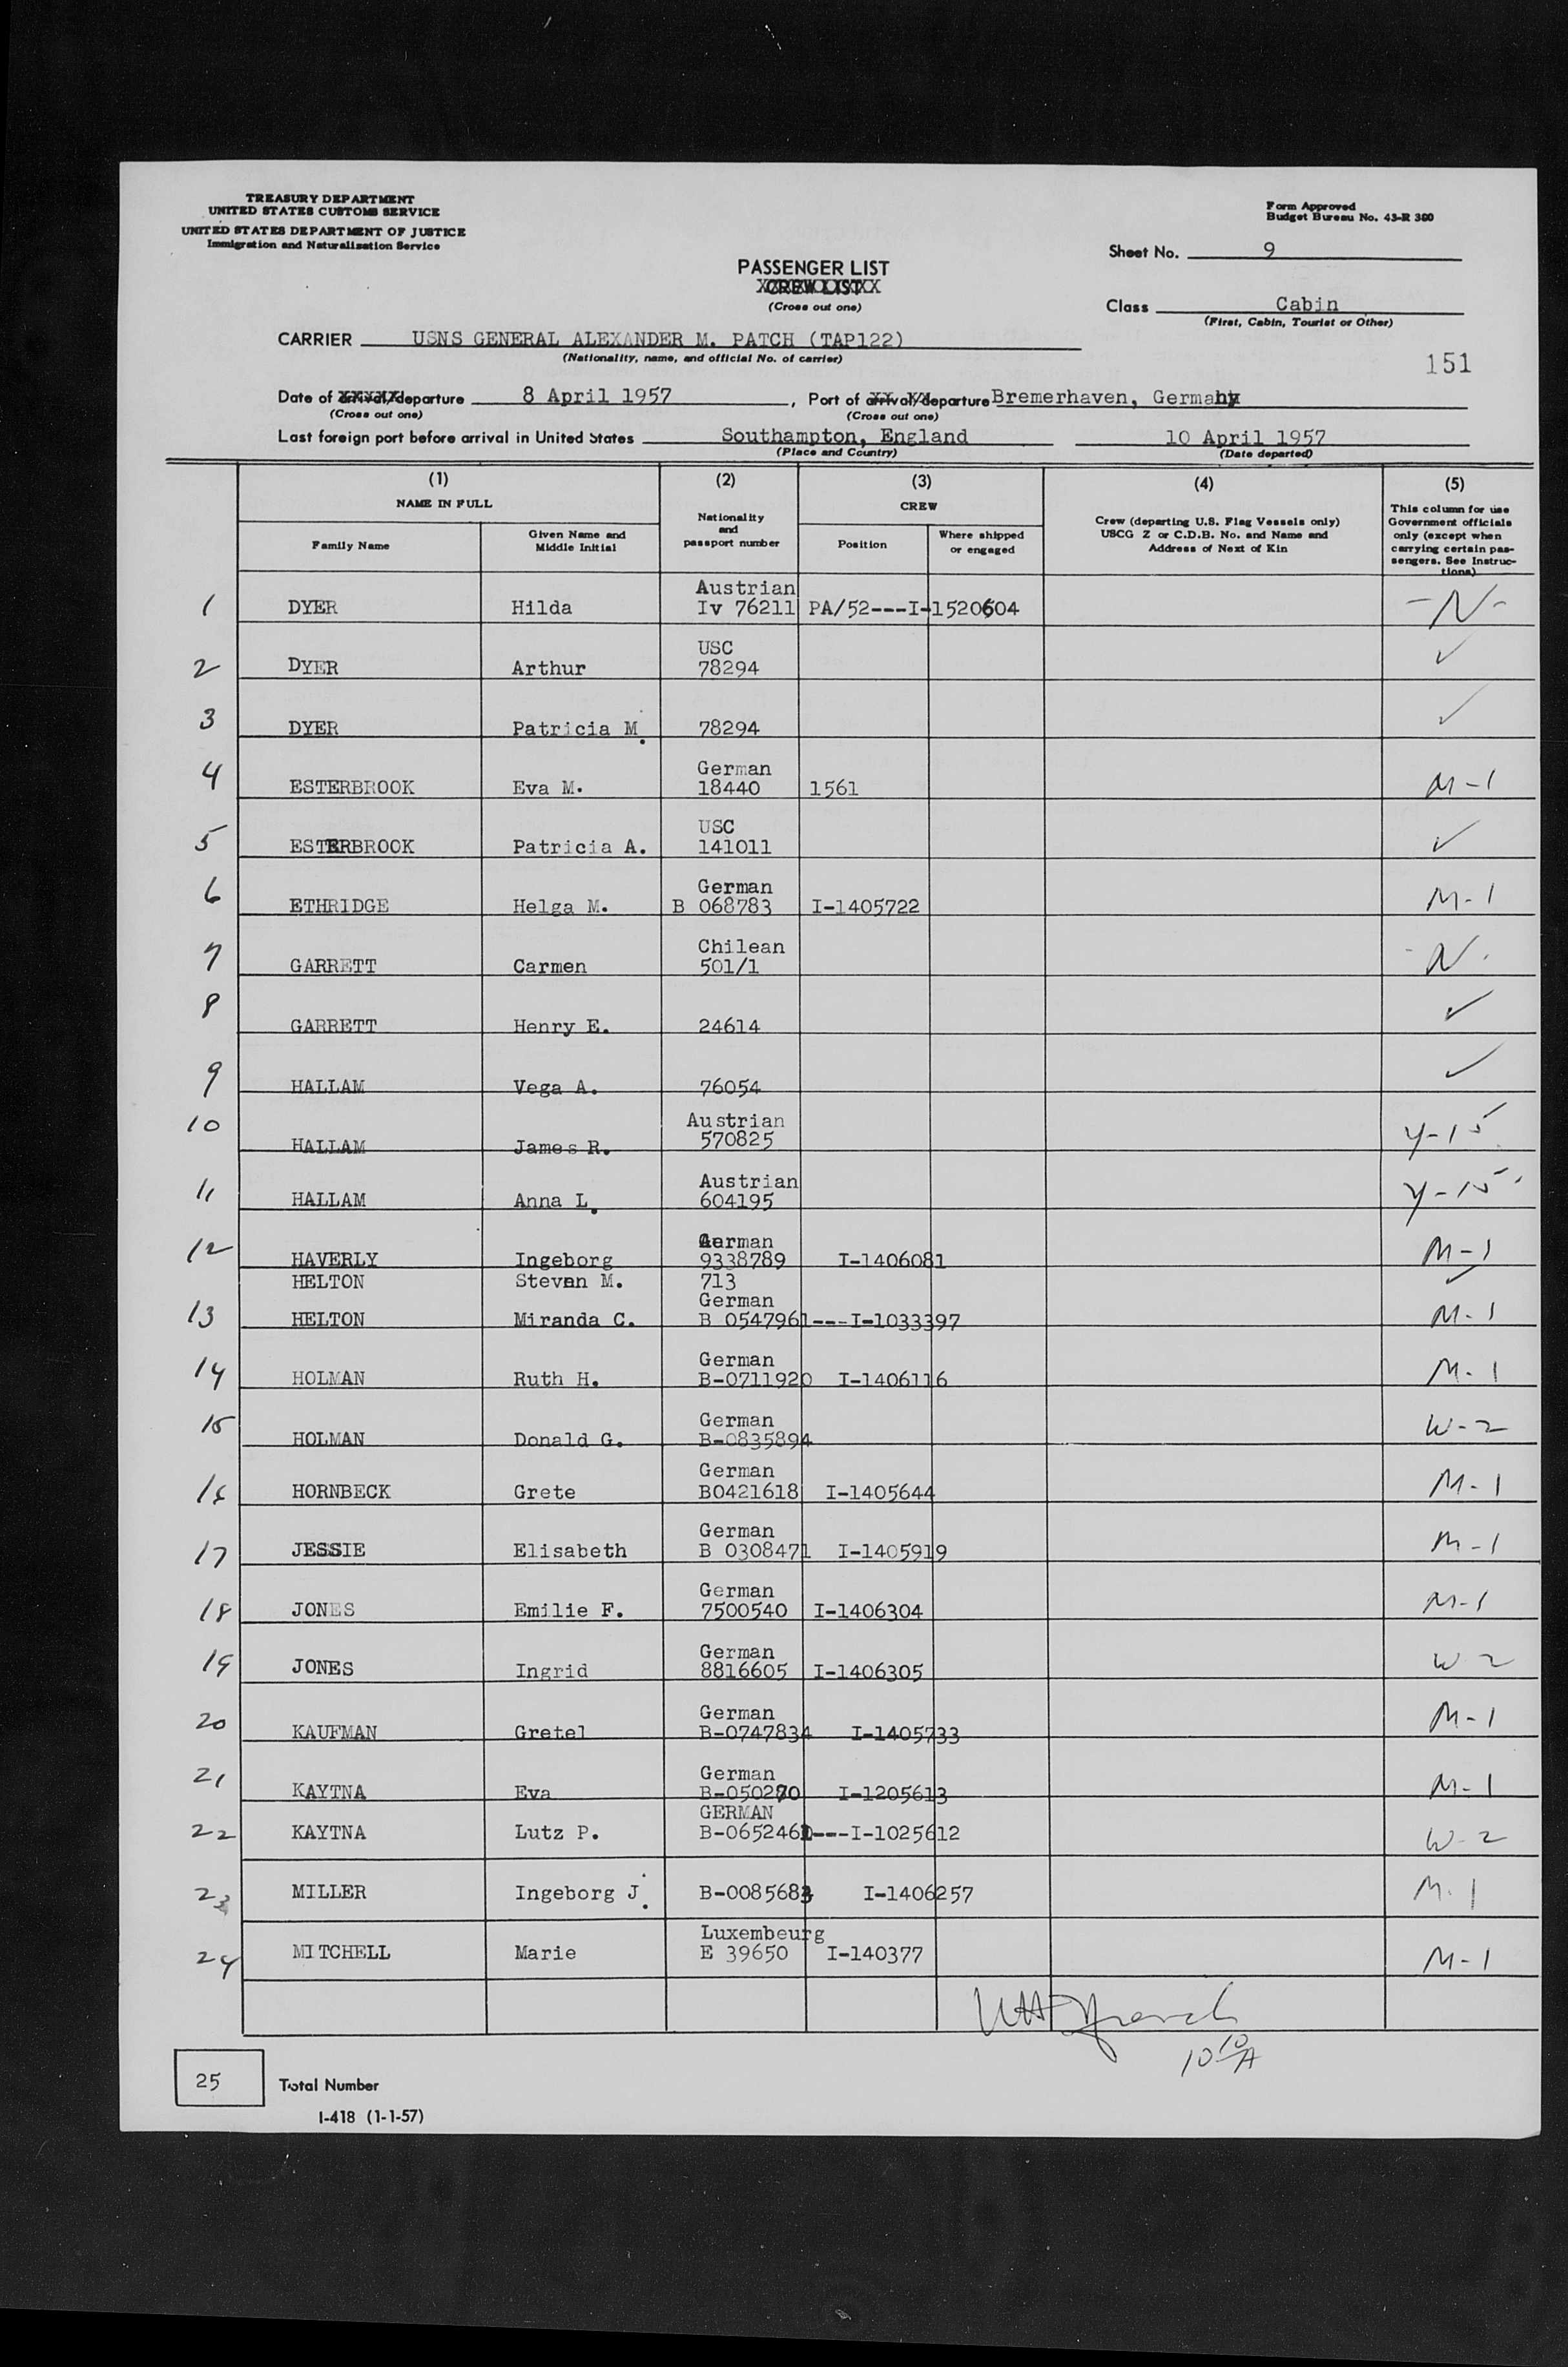 TREASURY DEPARTMENT
UNITED STATES CUSTOMS SERVICE
UNITED STATES DEPARTMENT OF JUSTICE
Immigration and Naturalization Service
Form Approved
Budget Bureau No. 43-R 380
Sheet No. 9
PASSENGER LIST
CREW LIST
(Cross out one)
Class Cabin
(First, Cabin, Tourist or Other)
CARRIER USNS GENERAL ALEXANDER M. PATCH (TAP122)
(Nationality, name, and official No. of carrier)
151
Date of arrival/departure 8 April 1957, Port of arrival/departure Bremerhaven, Germany
(Cross out one) (Cross out one)
Last foreign port before arrival in United States Southampton, England 10 April 1957
(Place and Country) (Date departed)
(1) (2) (3) (4) (5)
NAME IN FULL
Family Name
Given Name and
Middle Initial
Nationality
and
passport number
CREW
Position
Where shipped
or engaged
Crew (departing U.S. Flag Vessels only)
USCG Z or C.D.B. No. and Name and
Address of Next of Kin
This column for use
Government officials
only (except when
carrying certain pas-
sengers. See Instruc-
tions)
Austrian
1 DYER Hilda Iv 76211 PA/52---I-1520604 -N-
USC
2 DYER Arthur 78294 ✓
3 DYER Patricia M. 78294 ✓
German
4 ESTERBROOK Eva M. 18440 1561 M-1
USC
5 ESTERBROOK Patricia A. 141011 ✓
German
6 ETHRIDGE Helga M. B 068783 I-1405722 M-1
Chilean
7 GARRETT Carmen 501/1 -N.
8 GARRETT Henry E. 24614 ✓
9 HALLAM Vega A. 76054 ✓
Austrian
10 HALLAM James R. 570825 Y-15
Austrian
11 HALLAM Anna L. 604195 Y-15
German
12 HAVERLY Ingeborg 9338789 I-1406081 M-1
HELTON Steven M. 713 ✓
German
13 HELTON Miranda C. B 0547961---I-1033397 M-1
German
14 HOLMAN Ruth H. B-0711920 I-1406116 M-1
German
15 HOLMAN Donald G. B-0835894 W-2
German
16 HORNBECK Grete B0421618 I-1405644 M-1
German
17 JESSIE Elisabeth B 0308471 I-1405919 M-1
German
18 JONES Emilie F. 7500540 I-1406304 M-1
German
19 JONES Ingrid 8816605 I-1406305 W-2
German
20 KAUFMAN Gretel B-0747834 I-1405733 M-1
German
21 KAYTNA Eva I-1205613 M-1
GERMAN
22 KAYTNA Lutz P. I-1025612 W-2
23 MILLER Ingeborg J. I-1406257 M-1
Luxembeurg
24 MITCHELL Marie E 39650 I-140377 M-1
25 Total Number
I-418 (1-1-57)